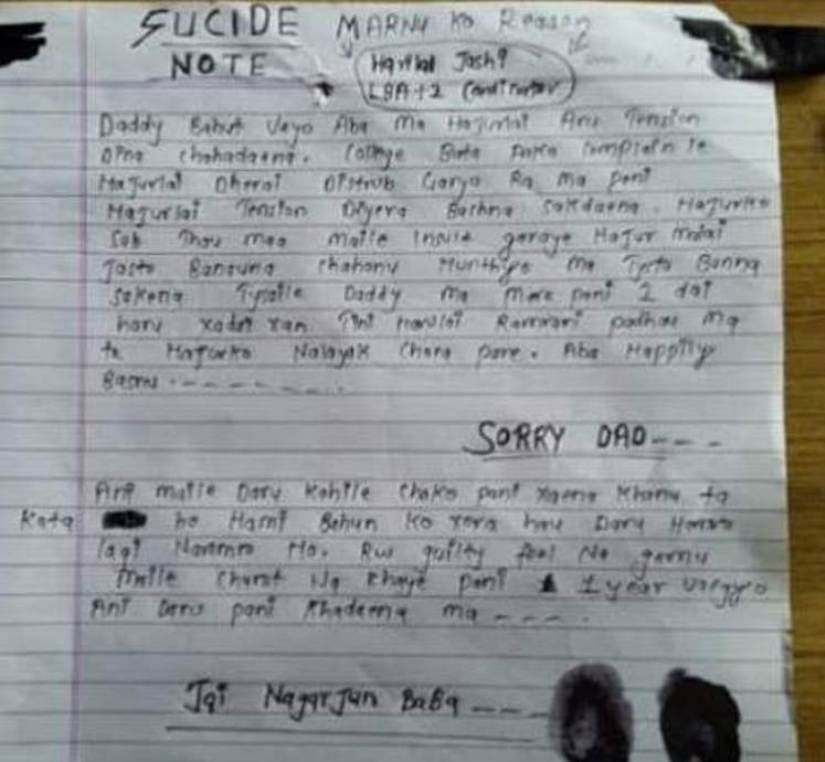 SUCIDE MARNU Ko Reason
NOTE Harilal Joshi
LBA+2 Cordinator
Daddy Bahut Vayo Aba Ma Hajurlai Aru Tension
Dina Chahadaena. College Bata Complain le
Hajurlai Dherai Distrub Garyo Ra Ma pani
Hajurlai Tension Diyera Bachna Sakdaena. Hajurko
Sab maa maile Insult garaye Hajur Malai
Jasto Banauna Chahanu Hunthiyo Ma Tyeto Banna
Sakena Tysaile Daddy Ma More pani 2 dai
haru xadai xan Tini Haru lai Ramrari padhau Ma
ta Hajurko Nalayak Chora pare. Aba Happily
Basnu ---------.
SORRY DAD---
Ani maile Daru Kahile Chako pani xaena Khanu ta
Kata ho Hami Bahun Ko xora hau Daru Hamro
lagi Naramro Ho. guilty feel Na garnu
Maile Churot Na Khaye pani 1 year vaegyo
Ani Daru pani Khadaena ma ----.
Jai Nagarjun BaBa ---